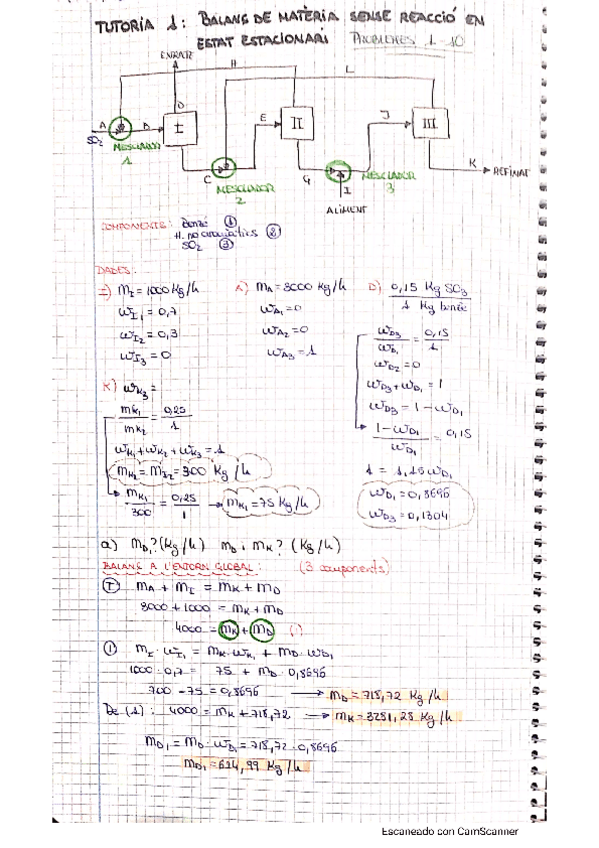 TUTORIA 1: BALANS DE MATÈRIA SENSE REACCIÓ EN
ESTAT ESTACIONARI PROBLEMES 1-10
EXTRACTE
H
L
D
A
B
I
E
II
J
III
SO2
MESCLADOR
1
C
MESCLADOR
2
G
I
MESCLADOR
3
K
REFINAT
ALIMENT
COMPONENTS: Benzé ①
H. no aromàtics ②
SO2 ③
DADES:
I) mI = 1000 Kg/h
ωI1 = 0,7
ωI2 = 0,3
ωI3 = 0
A) mA = 3000 Kg/h
ωA1 = 0
ωA2 = 0
ωA3 = 1
D) 0,15 Kg SO2 / 1 Kg benzé
ωD3 / ωD1 = 0,15 / 1
ωD2 = 0
ωD3 + ωD1 = 1
ωD3 = 1 - ωD1
1 - ωD1 / ωD1 = 0,15
1 = 1,15 ωD1
ωD1 = 0,8696
ωD3 = 0,1304
K) ωK3 =
mK1 / mK2 = 0,25 / 1
ωK1 + ωK2 + ωK3 = 1
mK2 = mI2 = 300 Kg/h
mK1 / 300 = 0,25 / 1 → mK1 = 75 Kg/h
a) mD1? (Kg/h) mD i mK? (Kg/h)
BALANÇ A L'ENTORN GLOBAL: (3 components)
Ⓣ mA + mI = mK + mD
3000 + 1000 = mK + mD
4000 = mK + mD (1)
① mI · ωI1 = mK · ωK1 + mD · ωD1
1000 · 0,7 = 75 + mD · 0,8696
700 - 75 = 0,8696 → mD = 718,72 Kg/h
De (1): 4000 = mK + 718,72 → mK = 3281,28 Kg/h
mD1 = mD · ωD1 = 718,72 · 0,8696
mD1 = 624,99 Kg/h
Escaneado con CamScanner